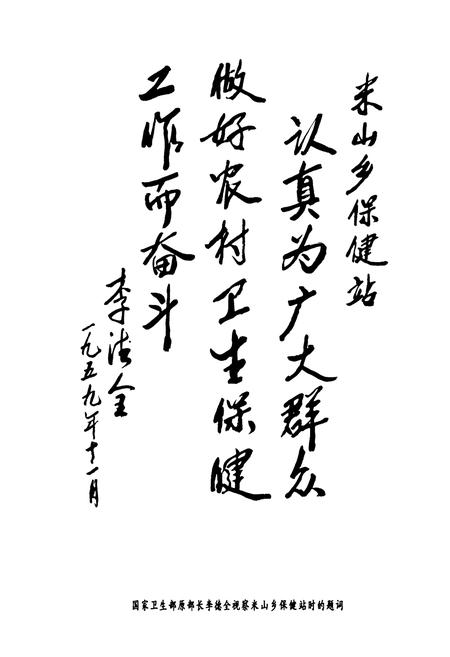 米山乡保健站
认真为广大群众
做好农村卫生保健
工作而奋斗
李德全
一九五九年十一月
国家卫生部原部长李德全视察米山乡保健站时的题词